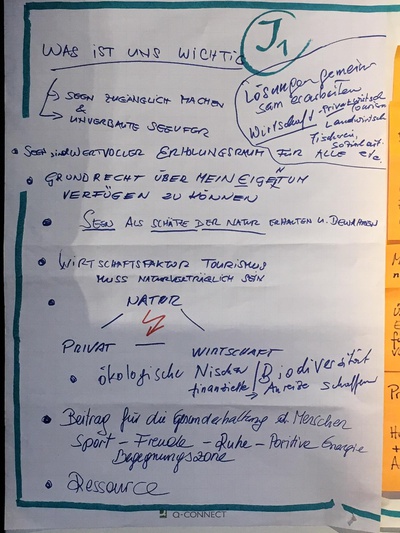 WAS IST UNS WICHTIG
J1
Lösungen gemein-
sam erarbeiten
Wirtschaft - Privatwirtsch
Tourismus
Landwirtsch
Fischerei,
SEEN ZUGÄNGLICH MACHEN
&
UNVERBAUTE SEEUFER
• SEEN SIND WERTVOLLER ERHOLUNGSRAUM FÜR ALLE etc.
• GRUNDRECHT ÜBER MEIN EIGENTUM
VERFÜGEN ZU KÖNNEN
• SEEN ALS SCHÄTZE DER NATUR ERHALTEN U. BEWAHREN
• WIRTSCHAFTSFAKTOR TOURISMUS
MUSS NATURVERTRÄGLICH SEIN
• NATUR
PRIVAT — WIRTSCHAFT
• ökologische Nischen / Biodiversität
finanzielle → Anreize schaffen
• Beitrag für die Gesunderhaltung d. Menschen
Sport - Freude - Ruhe - Positive Energie
Begegnungszone
• Ressource
Q-CONNECT